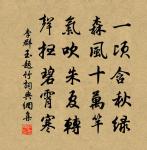 一頃含秋綠
森風十萬竿
氣吹朱夏轉
聲掃碧霄寒
李群玉題竹詞典網集